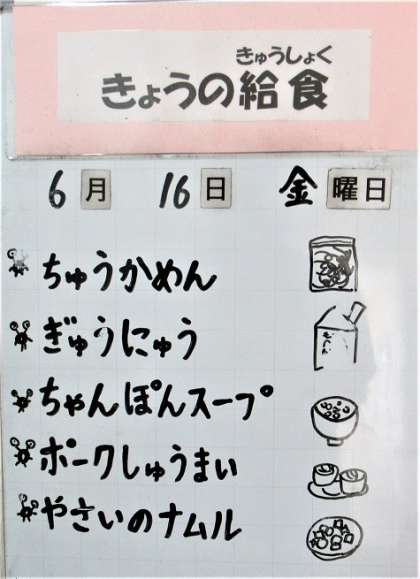 きゅうしょく
きょうの給食
6月 16日 金曜日
ちゅうかめん
ぎゅうにゅう
ちゃんぽんスープ
ポークしゅうまい
やさいのナムル